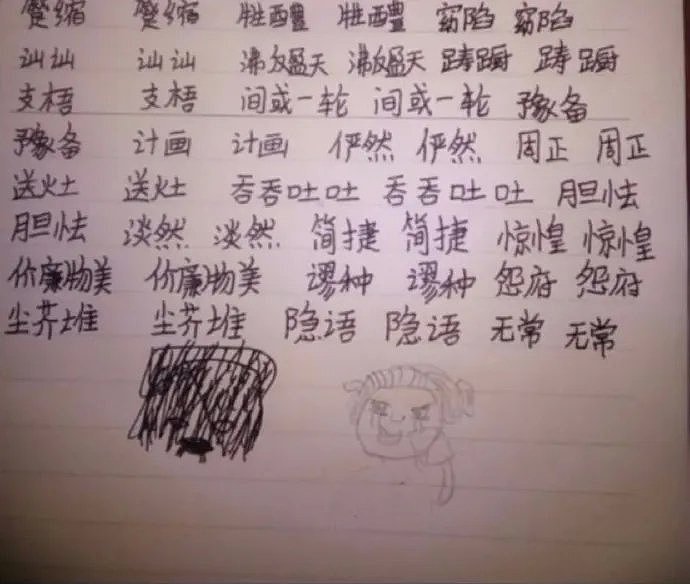 蹙缩 蹙缩 牲醴 牲醴 窈陷 窈陷
讪讪 讪讪 沸反盈天 沸反盈天 踌蹰 踌蹰
支梧 支梧 间或一轮 间或一轮 豫备
豫备 计画 计画 俨然 俨然 周正 周正
送灶 送灶 吞吞吐吐 吞吞吐吐 胆怯
胆怯 淡然 淡然 简捷 简捷 惊惶 惊惶
价廉物美 价廉物美 谬种 谬种 怨府 怨府
尘芥堆 尘芥堆 隐语 隐语 无常 无常